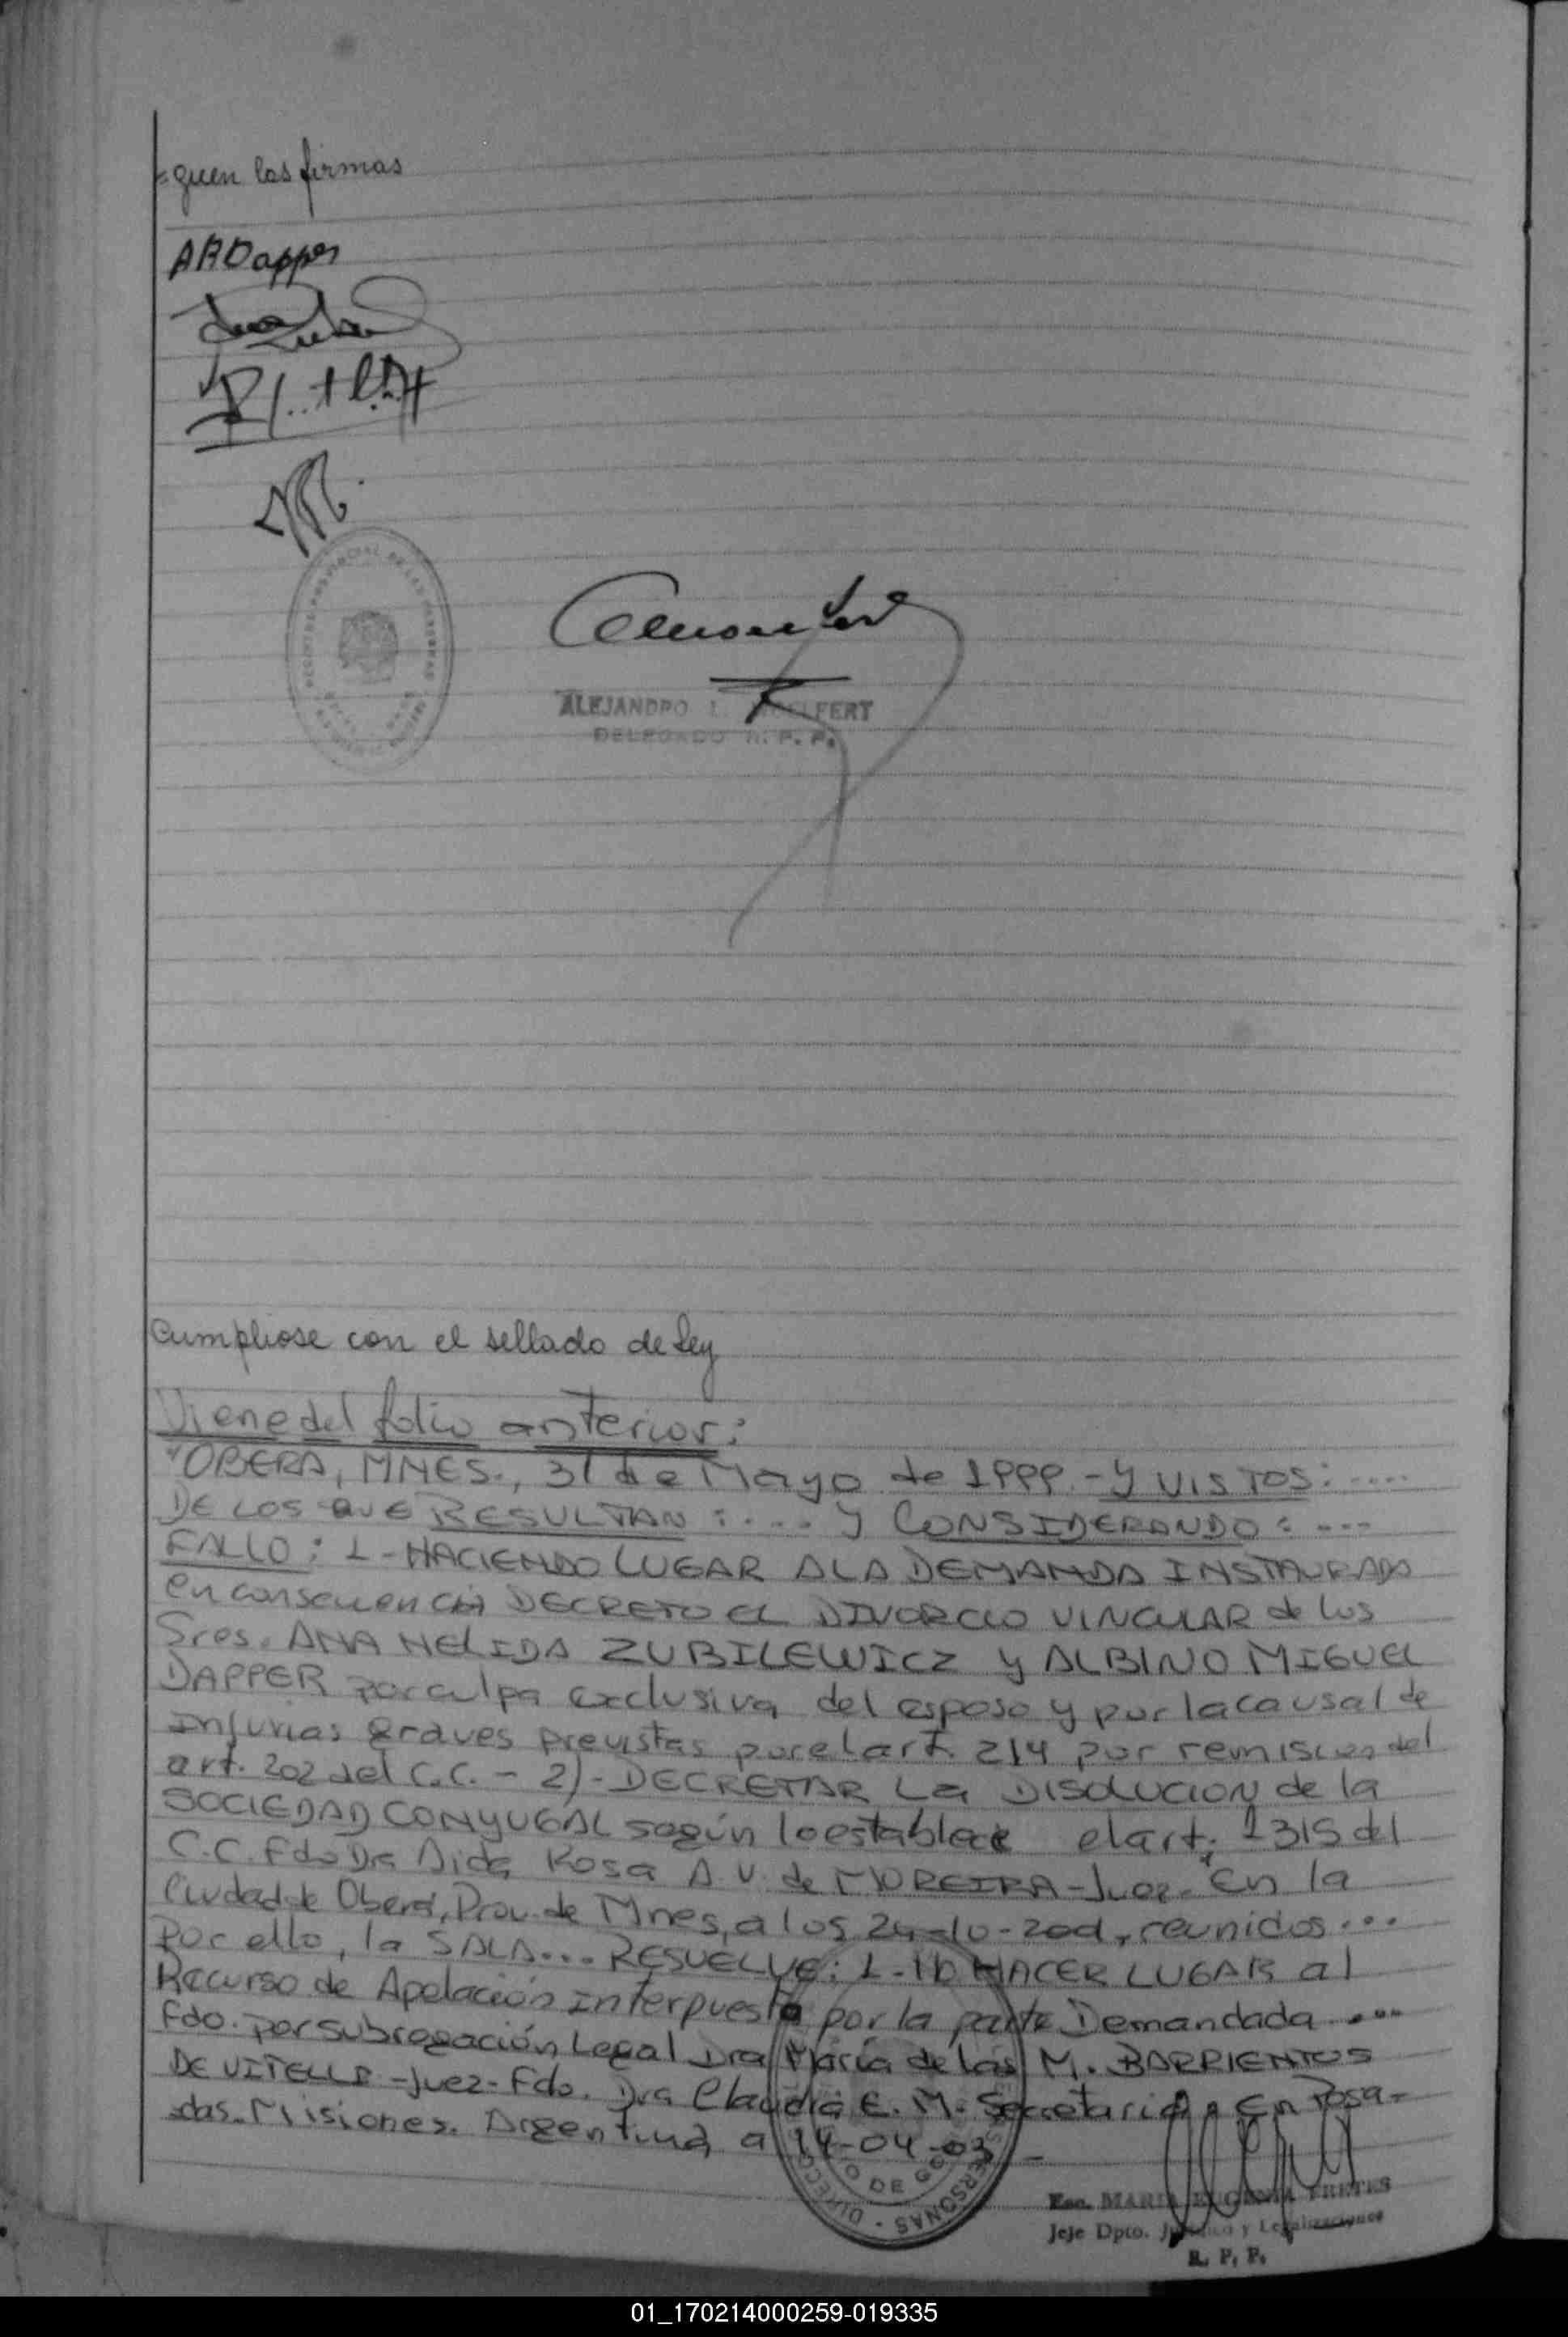 =guen las firmas
ARDapper
ALEJANDRO L. WOELFERT
DELEGADO R. P. P.
Cumpliose con el sellado de ley
Viene del folio anterior:
"OBERA, MNES., 31 de Mayo de 1999.- Y VISTOS: ....
DE LOS QUE RESULTAN: .... Y CONSIDERANDO: ...
FALLO: 1-HACIENDO LUGAR A LA DEMANDA INSTAURADA
en consecuencia DECRETO EL DIVORCIO VINCULAR de los
Sres. ANA NELIDA ZUBILEWICZ y ALBINO MIGUEL
DAPPER por culpa exclusiva del esposo y por la causal de
Injurias graves previstas por el art. 214 por remision del
art. 202 del C.C. - 2)-DECRETAR La DISOLUCION de la
SOCIEDAD CONYUGAL según lo establece el art. 1315 del
C.C. Fdo Dra Aida Rosa A.V. de MOREIRA-Juez. "En la
Ciudad de Oberá, Prov. de Mnes, a los 24-10-2001, reunidos...
Por ello, la SALA... RESUELVE: 1- NO HACER LUGAR al
Recurso de Apelación interpuesto por la parte Demandada ....
Fdo. por subrogación Legal Dra María de las M. BARRIENTOS
DE VITELLI -Juez- Fdo. Dra Claudia E. M. Secretaria. En Posa-
das. Misiones. Argentina, a 14-04-03 -
Esc. MARIA EUGENIA FRETES
Jefe Dpto. Jurídico y Legalizaciones
R. P. P.
01_170214000259-019335